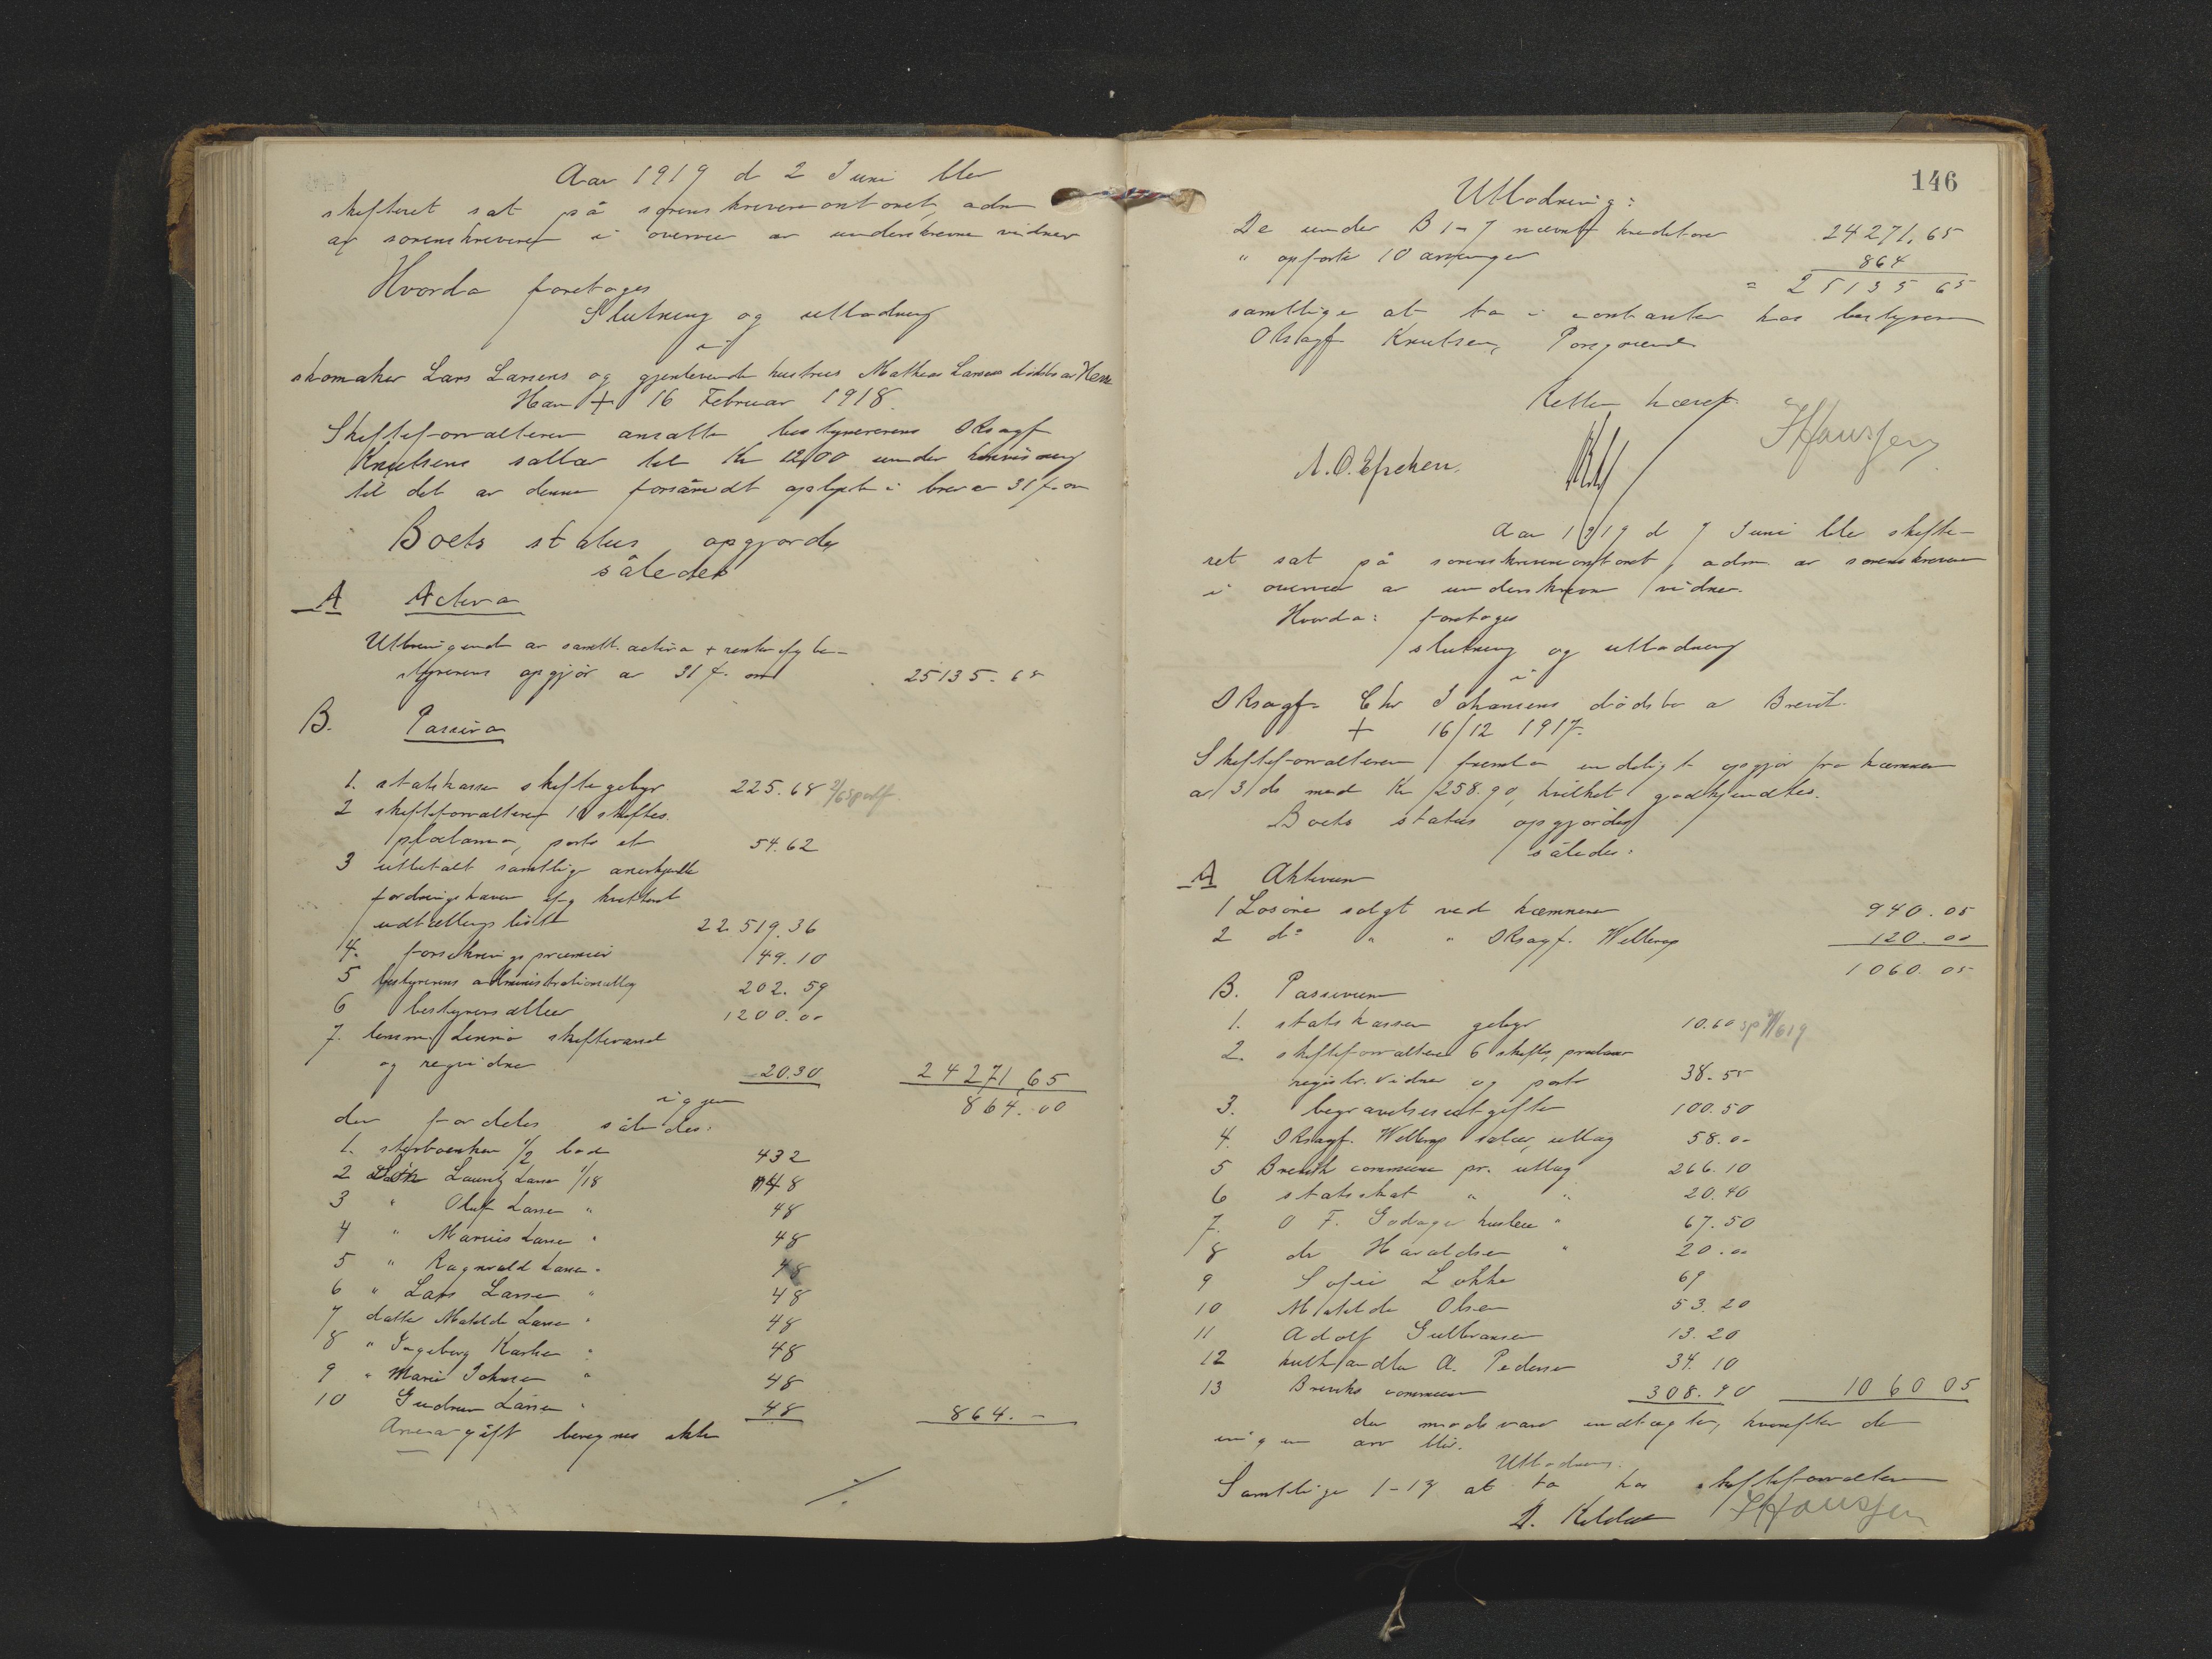 Aar 1919 d 2 Juni blev
skifteret sat på sorenskriverkontoret, adm
af sorenskriveren i overvær av underskrevne vidner
Hvorda foretoges
Slutning og utlodning
i
skomaker Lars Larsens og gjenlevende hustrus Mathea Larsens dødsbo av
Han + 16 Februar 1918.
Skifteforvalteren ansatte bestyrerens ORsagf
Knutsens sallær til Kr 1200 under henvisning
til det av denne forsåvidt oplyste i brev av 31 f. m
Boets status opgjordes
således
A Activa
Utbringende av samtl. activa + renter efg be-
styrerens opgjör av 31 f. md 25135.65
B. Passiva
1. statskassen skiftegebyr 225.68
2 skifteforvalteren 10 skiftes.
proclama, porto et 54.62
3 utbetalt samtlige anerkjendte
fordringshavere efg kvittert
udtællingsliste 22.519.36
4. forsikringspræmier 49.10
5 bestyrerens administrationsutlæg 202.59
6 bestyrerens sallær 1200.00
7. lensm. skiftevarsel
og regvidner 20.30 24271,65
igjen 864.00
der fordeles således:
1. sterboenken 1/2 bo 432
2 Søn Lauritz Larsen 1/18 48
3 " Oluf Larsen " 48
4 " Marius Larsen " 48
5 " Ragnvald Larsen " 48
6 " Lars Larsen " 48
7 datter Matilde Larsen " 48
8 " Ingeborg " 48
9 " Marie Johnsen " 48
10 Gudrun Larsen " 48 864.-
Arveavgift beregnes ikke
./.
146
Utlodning:
De under B 1-7 nævnte kreditorer 24271,65
" opförte 10 arvinger 864
= 25135 65
samtlige at ta i contanter hos bestyreren
ORsagf Knutsen, Porsgrund
Retten hævet.
Aar 1919 d 7 Juni blev skifte-
ret sat på sorenskriverkontoret, adm. av sorenskriveren
i overvær av underskrevne vidner.
Hvorda: foretoges
slutning og utlodning
i
ORsagf. Chr Johansens dödsbo av Brevik.
+ 16/12 1917.
Skifteforvalteren fremla endeligt opgjör fra kæmner
av 3 ds med Kr 258.90, hvilket godkjendtes.
Boets status opgjordes
således:
A Aktivum
1 Lösöre solgt ved kæmneren 940.05
2 do " " ORsagf. 120.00
1060.05
B. Passivum
1. statskassen gebyr 10.60
2. skifteforvalteren 6 skifter, proclama
registr. vidner og porto 38.55
3. begravelsesutgifter 100.50
4. ORsagf. salær, utlæg 58.00
5 Brevik commune pr. utlæg 266.10
6 statsskat " " 20.40
7. O F. husleie " 67.50
8 dr Haraldsen " 20.00
9 Sofie Lökke 69
10 Matilde Olsen 53.20
11 Adolf Gulbransen 13.20
12 kulhandler A. Pedersen 34.10
13 Breviks commune 308.90 1060 05
der modsvarer indtægten, hvorefter der
ingen arv blir.
Utlodning.
Samtlige 1-13 at ta hos skifteforvalteren